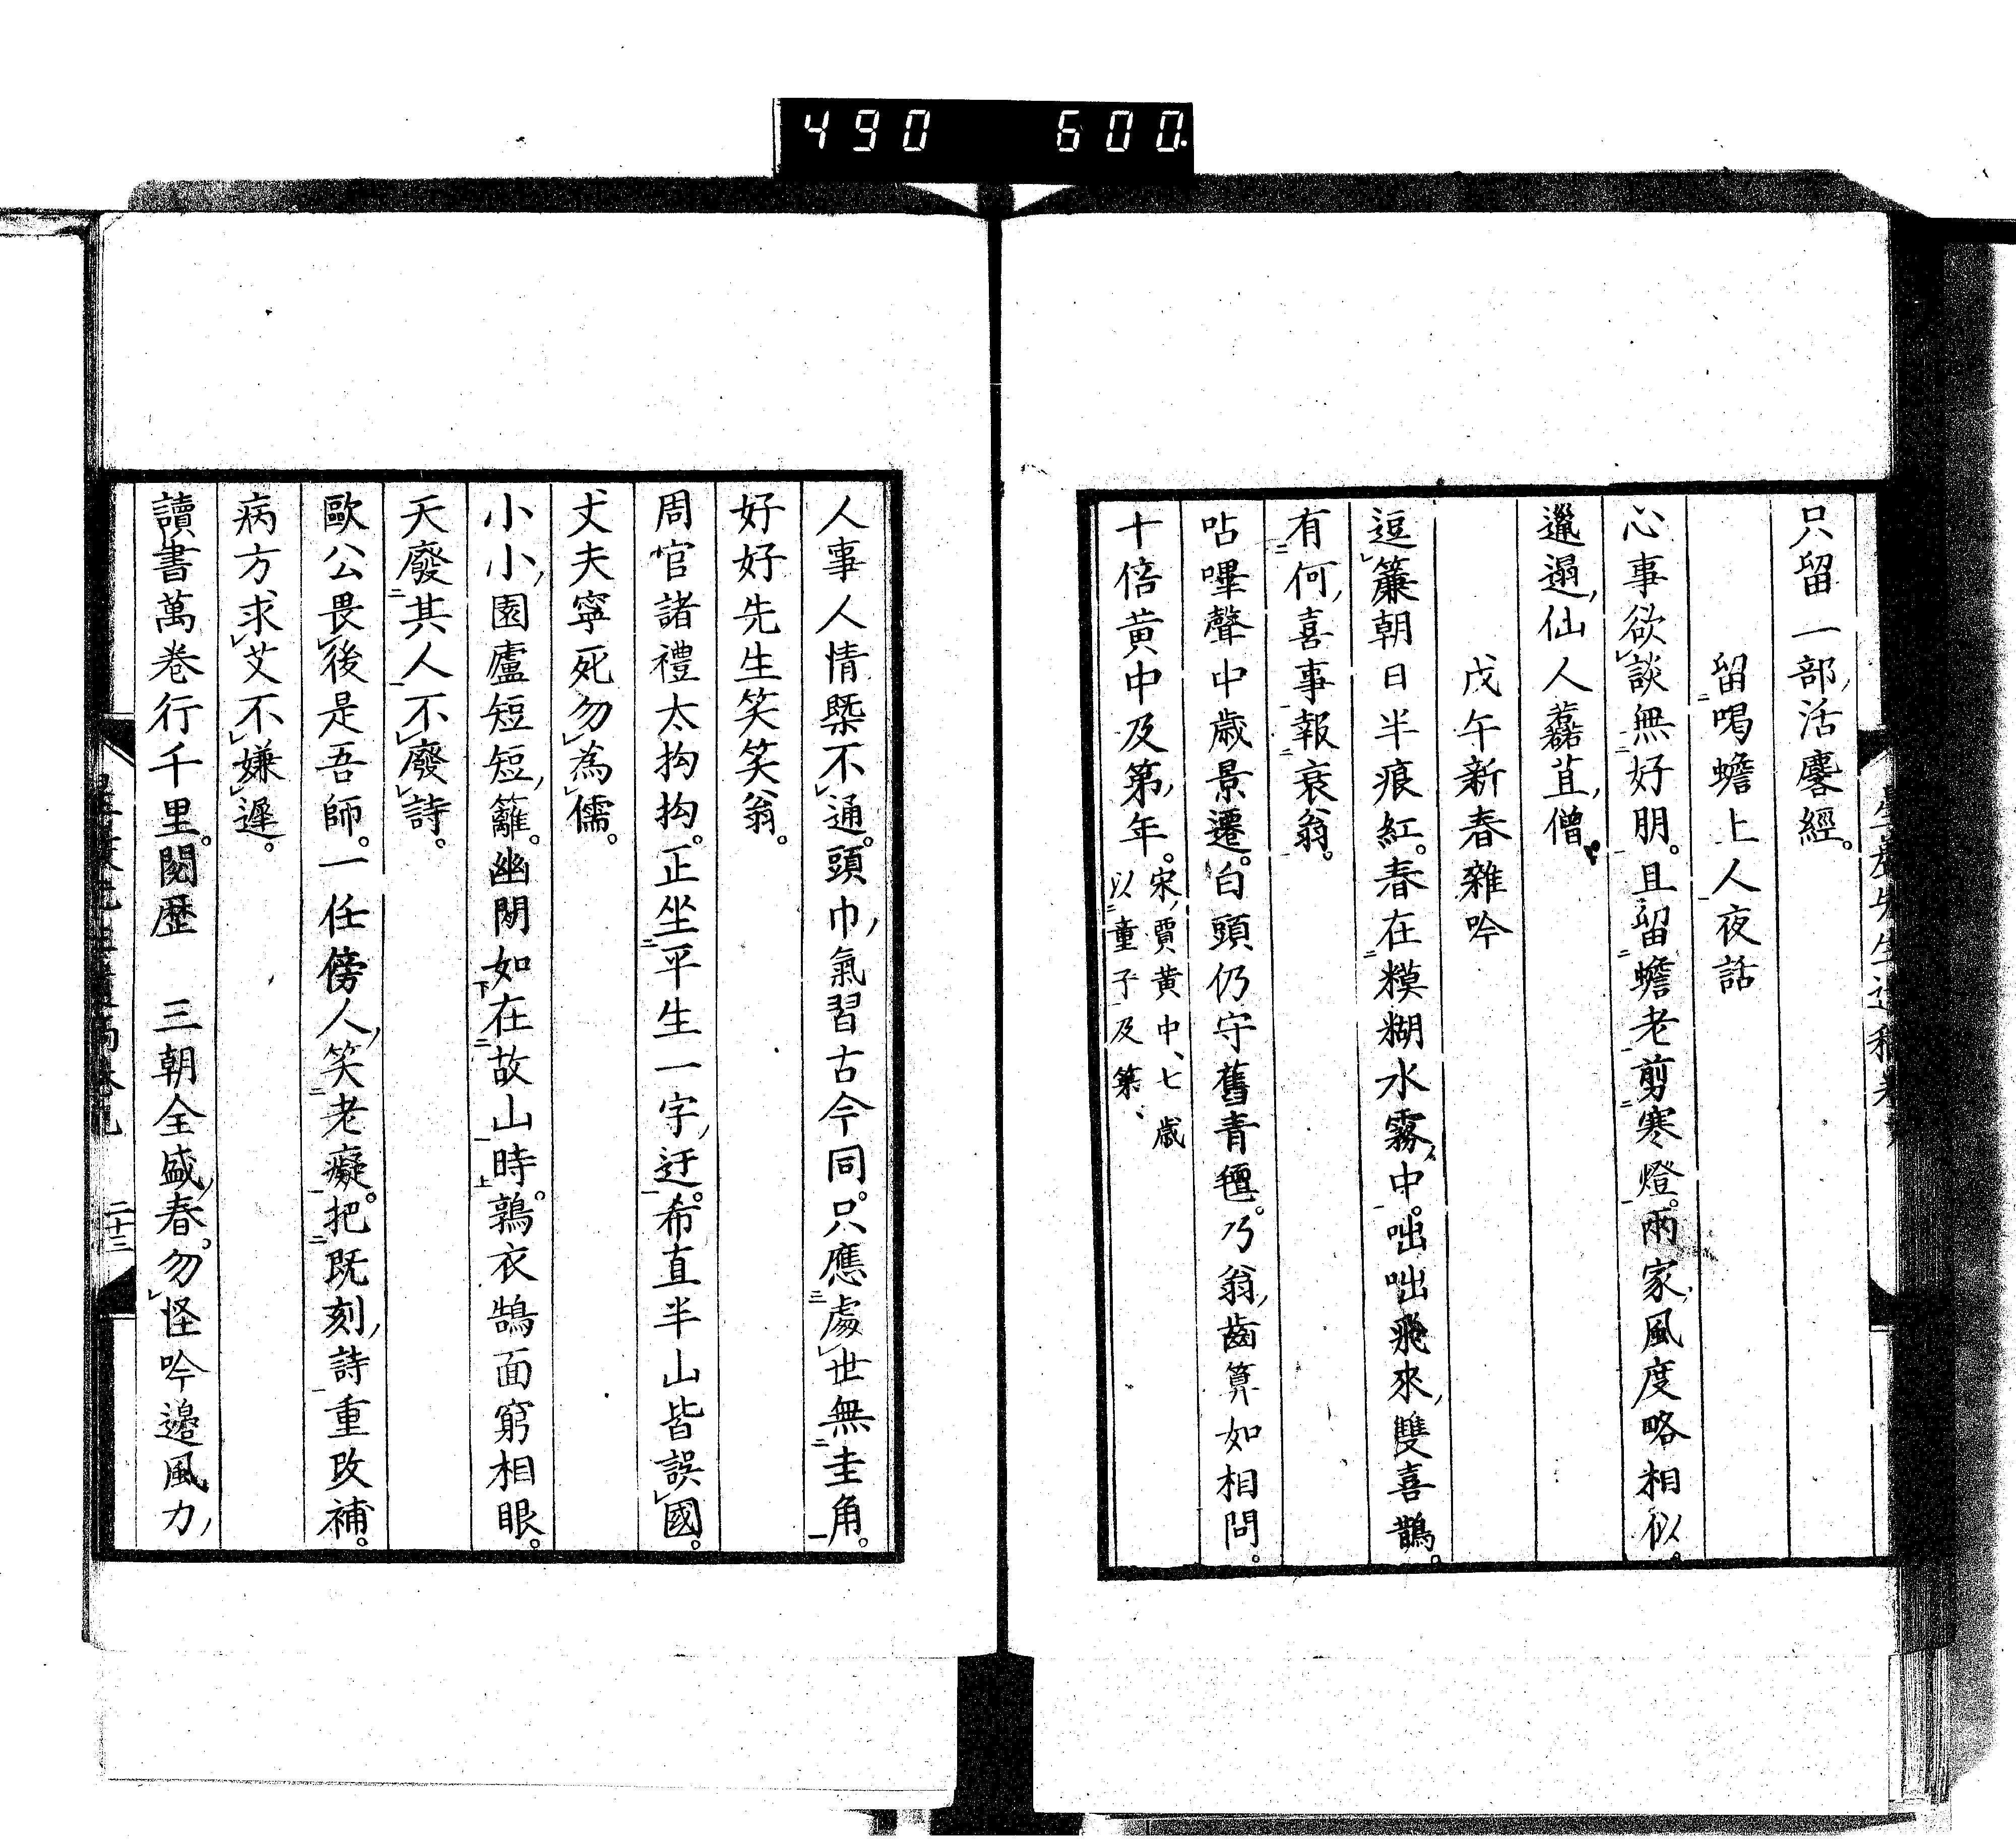 490 600
只留一部活麐經。
留喝蟾上人夜話
心事欲談無好朋。且留蟾老剪寒燈。兩家風度略相似。
邋遢仙人藞苴僧
戊午新春雜吟
逗簾朝日半痕紅。春在糢糊水霧中。咄咄飛來雙喜鵲。
有何喜事報衰翁。
呫嗶聲中歲景遷。白頭仍守舊青氈。乃翁齒算如相問。
十倍黃中及第年。宋賈黃中、七歲
以童子及第、
人事人情槩不通。頭巾氣習古今同。只應處世無圭角。
好好先生笑笑翁。
周官諸禮太拘拘。正坐平生一字迂。希直半山皆誤國。
丈夫寧死勿為儒。
小小園廬短短籬。幽閒如在故山時。鶉衣鵠面窮相眼。
天廢其人不廢詩。
歐公畏後是吾師。一任傍人笑老癡。把既刻詩重改補。
病方求艾不嫌遲。
讀書萬卷行千里。閱歷 三朝全盛春。勿怪吟邊風力
二十三